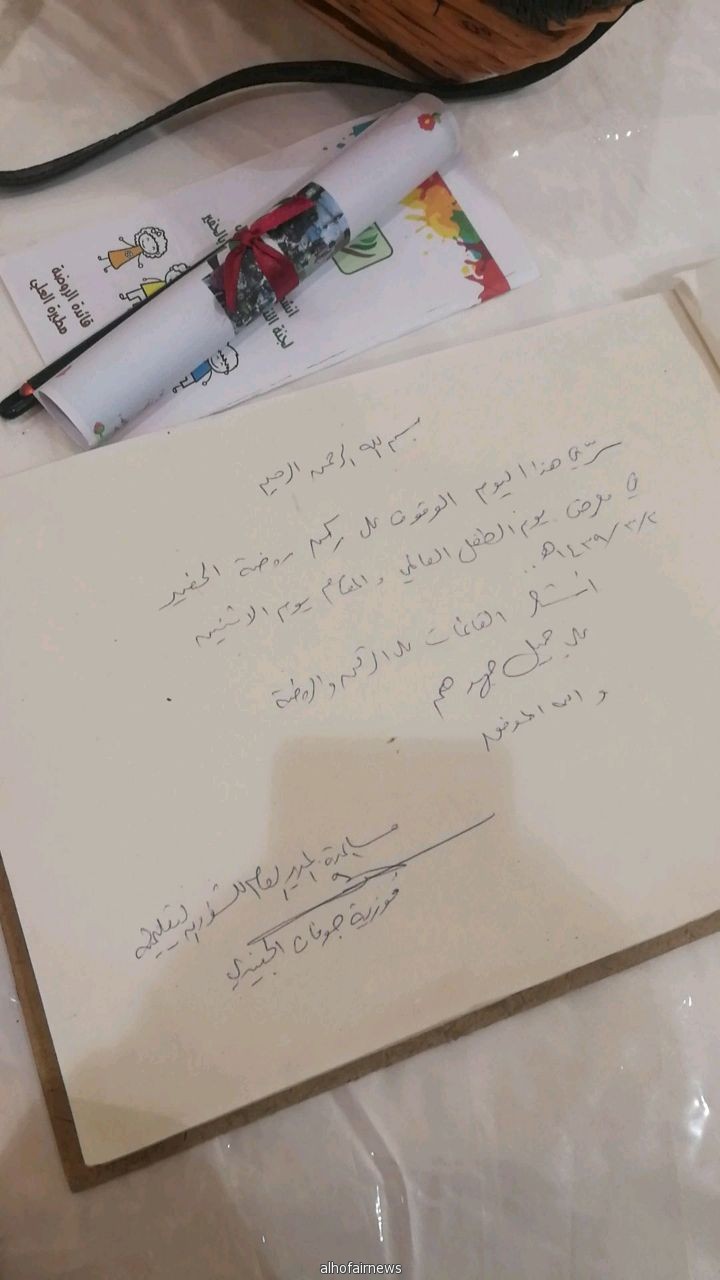 قائدة الروضة
مطيرة العلي
لجنة
بسم الله الرحمن الرحيم
سرّني هذا اليوم الوقوف على ركن روضة الحفير
في معرض يوم الطفل العالمي والمقام يوم الاثنين
١٤٣٩/٣/٢هـ..
أشكر القائمات على الركن والروضة
على جميل جهدهم
والله الموفق
مساعدة المدير العام للشؤون التعليمية
فوزية جوفان الجنيدي
alhofairnews